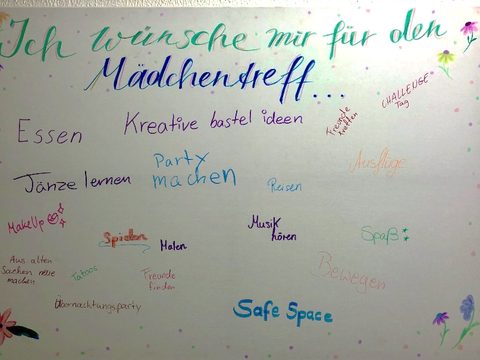 Ich wünsche mir für den
Mädchentreff...
Essen
Kreative bastel ideen
Freunde
treffen
CHALLENGE
Tag
Tänze lernen
Party
machen
Reisen
Ausflüge
MakeUp
Spielen
Malen
Musik
hören
Spaß
Aus alten
Sachen neue
machen
Tatoos
Freunde
finden
Bewegen
Übernachtungsparty
Safe Space